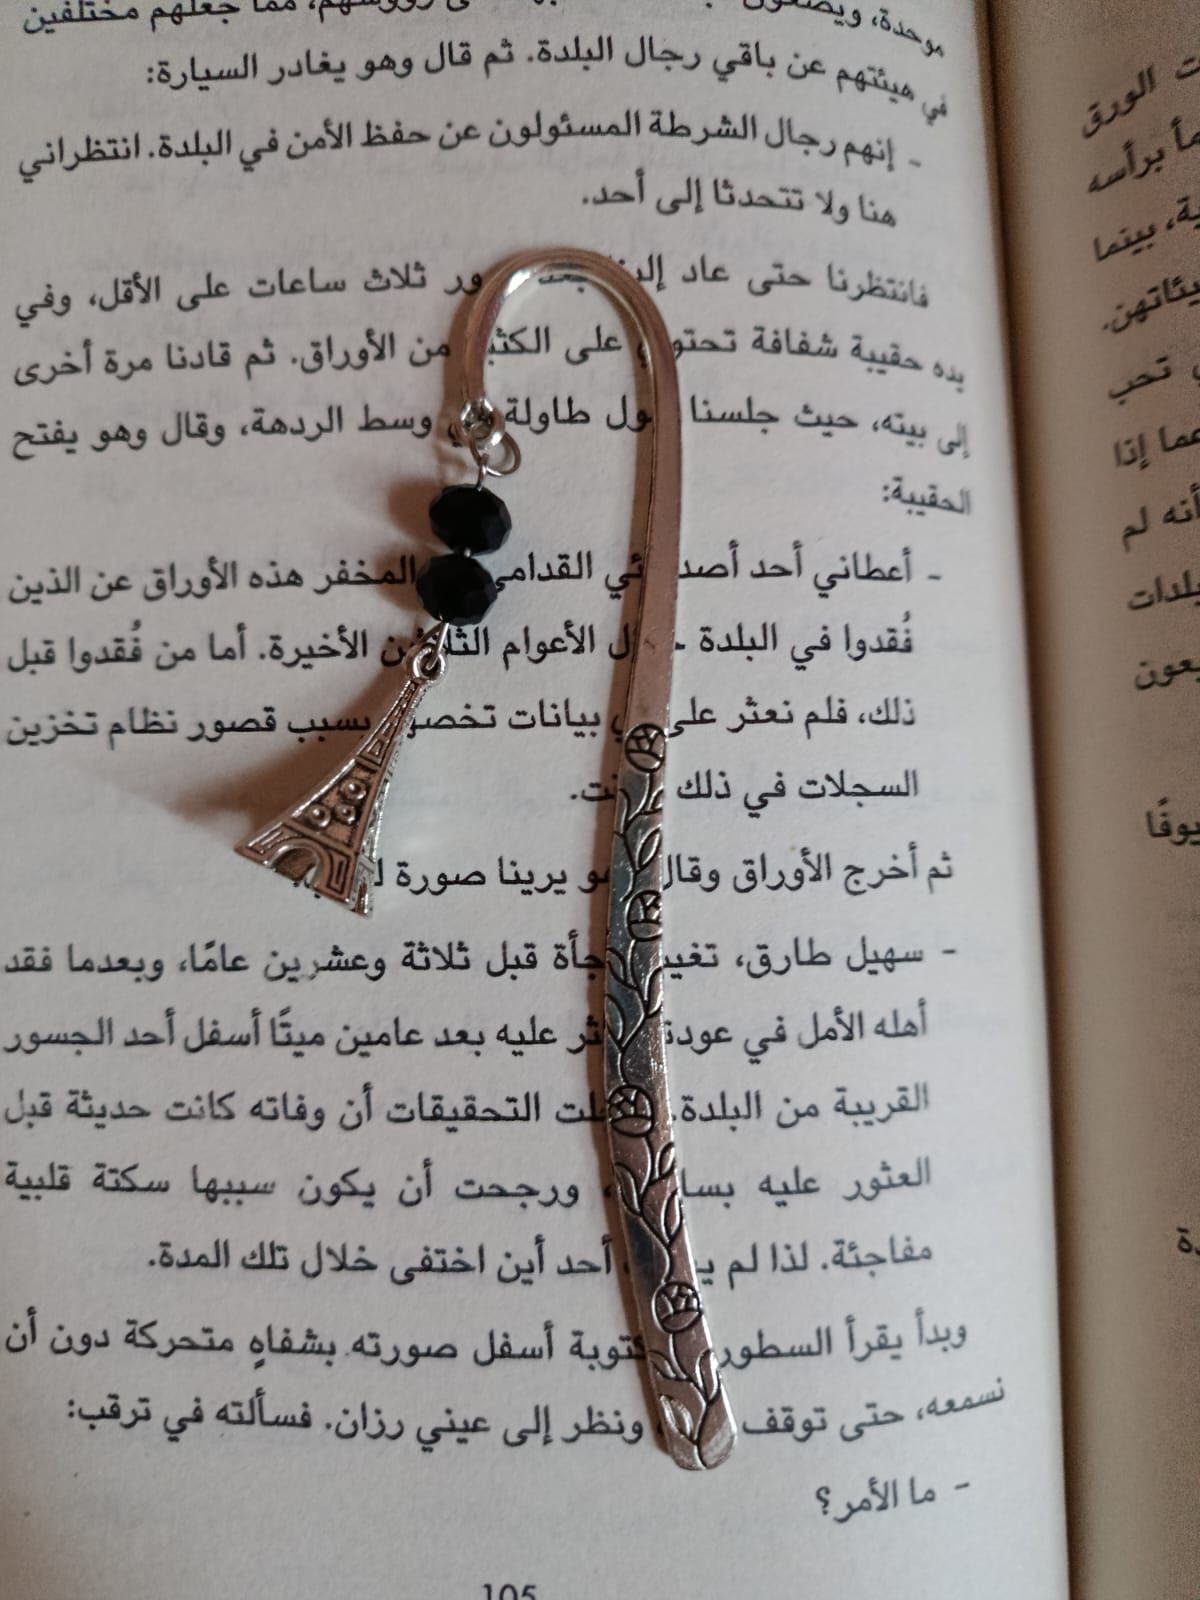 موحدة، مما جعلهم مختلفين
في هيئتهم عن باقي رجال البلدة. ثم قال وهو يغادر السيارة:
- إنهم رجال الشرطة المسئولون عن حفظ الأمن في البلدة. انتظراني
هنا ولا تتحدثا إلى أحد.
فانتظرنا حتى عاد ثلاث ساعات على الأقل، وفي
يده حقيبة شفافة على من الأوراق. ثم قادنا مرة أخرى
إلى بيته، حيث جلسنا طاولة وسط الردهة، وقال وهو يفتح
الحقيبة:
- أعطاني أحد القدامى المخفر هذه الأوراق عن الذين
فُقدوا في البلدة الأعوام الأخيرة. أما من فُقدوا قبل
ذلك، فلم نعثر على بيانات بسبب قصور نظام تخزين
السجلات في ذلك
ثم أخرج الأوراق وقال يرينا صورة
- سهيل طارق، قبل ثلاثة وعشرين عامًا، وبعدما فقد
أهله الأمل في عليه بعد عامين ميتًا أسفل أحد الجسور
القريبة من البلدة. التحقيقات أن وفاته كانت حديثة قبل
العثور عليه ورجحت أن يكون سببها سكتة قلبية
مفاجئة. لذا لم أحد أين اختفى خلال تلك المدة.
وبدأ يقرأ السطور أسفل صورته بشفاهٍ متحركة دون أن
نسمعه، حتى توقف ونظر إلى عيني رزان. فسألته في ترقب:
- ما الأمر؟
105
الورق
برأسه
بينما
تحب
عما إذا
أنه لم